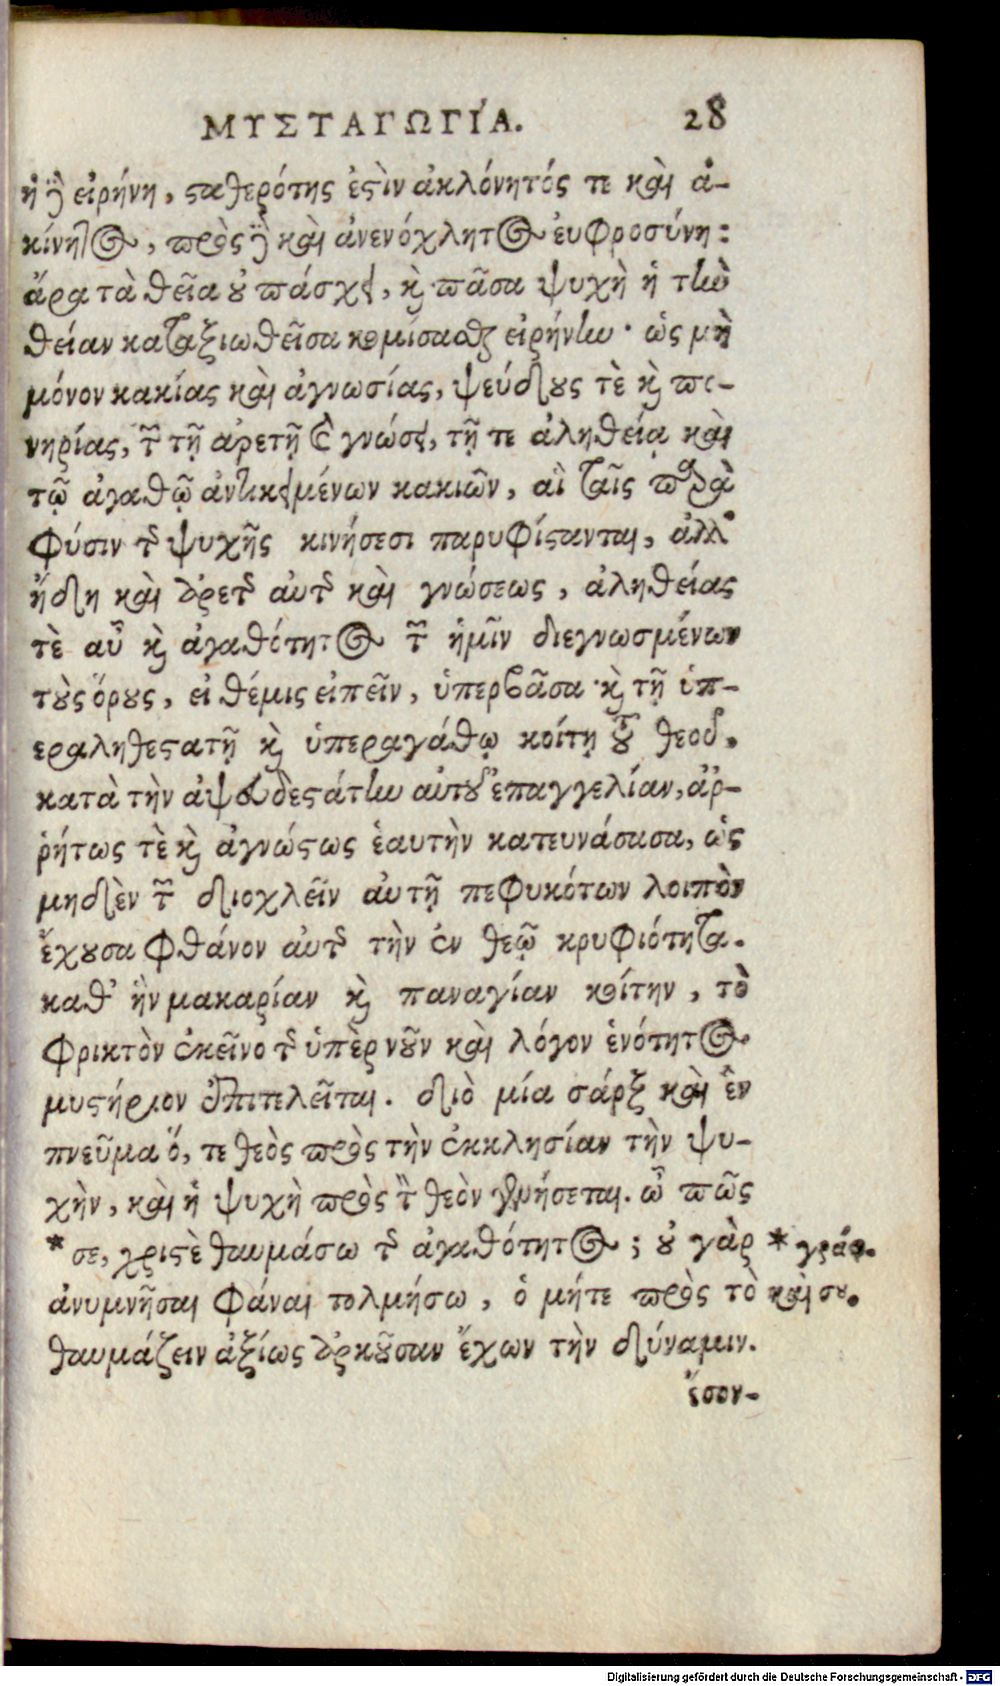 ΜΥΣΤΑΓΩΓΙ´Α. 28
ἡ ὃ εἰρήνη, ϛαθερότης ἐϛὶν ἀκλόνητός τε καὶ ἀ-
κίνητος, πρὸς ὃ καὶ ἀνενόχλητος ἐυφροσύνη:
ἄρα τὰ θεῖα ȣ πάσχει, κὶ πᾶσα ψυχὴ ἡ τὴν
θείαν καταξιωθεῖσα κομίσασθαι εἰρήνην· ὡς μὴ
μόνον κακίας καὶ ἀγνωσίας, ψεύδȣς τὲ κὶ πο-
νηρίας, τῶν τῇ ἀρετῇ καὶ γνώσει, τῇ τε ἀληθείᾳ καὶ
τῷ ἀγαθῷ ἀντικειμένων κακιῶν, αἳ ταῖς παρὰ
φύσιν τῆς ψυχῆς κινήσεσι παρυφίϛανται, ἀλλ᾽
ἤδη καὶ ἀρετῆς ἀυτῆς καὶ γνώσεως, ἀληθείας
τὲ αὖ κὶ ἀγαθότητος τῶν ἡμῖν διεγνωσμένων
τȣ̀ς ὅρȣς, εἰ θέμις εἰπεῖν, ὑπερβᾶσα κὶ τῇ ὑπ-
εραληθεϛατῇ κὶ ὑπεραγάθῳ κοίτῃ τȣ͂ θεοῦ,
κατὰ τὴν ἀψευδεϛάτην αὐτοῦ ἐπαγγελίαν, ἀῤ-
ῥήτως τὲ κὶ ἀγνώϛως ἑαυτὴν κατευνάσασα, ὡς
μηδὲν τῶν διοχλεῖν ἀυτῇ πεφυκότων λοιπὸν
ἔχȣσα φθάνον ἀυτῆς τὴν ἐν θεῷ κρυφιότητα.
καθ᾽ ἣν μακαρίαν κὶ παναγίαν κοίτην, τὸ
φρικτὸν ἐκεῖνο τῆς ὑπὲρ νȣ͂ν καὶ λόγον ἑνότητος
μυϛήριον ἐπιτελεῖται. διὸ μία σάρξ καὶ ἓν
πνεῦμα ὅ, τε θεὸς πρὸς τὴν ἐκκλησίαν τὴν ψυ-
χὴν, καὶ ἡ ψυχὴ πρὸς τὸν θεὸν γενήσεται. ὦ πῶς
* σε, χριϛὲ θαυμάσω τῆς ἀγαθότητος; ȣ γὰρ * γράφ.
ἀνυμνῆσαι φάναι τολμήσω, ὁ μήτε πρὸς τὸ καὶ σȣ.
θαυμάζειν ἀξίως ἀρκȣ͂σαν ἔχων τὴν δύναμιν.
ἔσον-
Digitalisierung gefördert durch die Deutsche Forschungsgemeinschaft - DFG